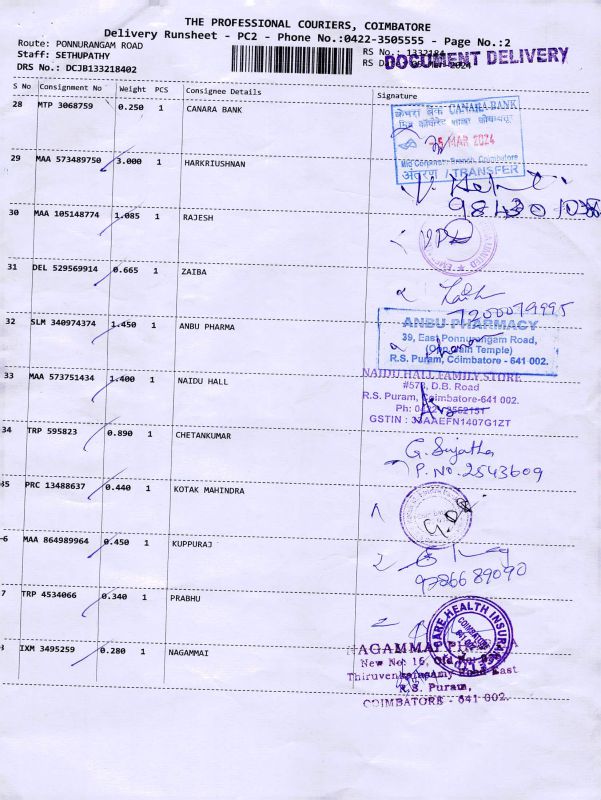 THE PROFESSIONAL COURIERS, COIMBATORE
Delivery Runsheet - PC2 - Phone No.:0422-3505555 - Page No.:2
Route: PONNURANGAM ROAD
Staff: SETHUPATHY
DRS No.: DCJB133218402
RS No.: 1332184
RS D
DOCUMENT DELIVERY
S No Consignment No Weight PCS Consignee Details Signature
28 MTP 3068759 0.250 1 CANARA BANK
केनरा बैंक CANARA BANK
MAR 2024
अंतरण / TRANSFER
29 MAA 573489750 3.000 1 HARKRIUSHNAN
30 MAA 105148774 1.085 1 RAJESH
31 DEL 529569914 0.665 1 ZAIBA
7200079995
32 SLM 340974374 1.450 1 ANBU PHARMA
ANBU PHARMACY
39, East Ponnurangam Road,
(Opp. Jain Temple)
R.S. Puram, Coimbatore - 641 002.
33 MAA 573751434 1.400 1 NAIDU HALL
NAIDU HALL FAMILY STORE
#578, D.B. Road
R.S. Puram, Coimbatore-641 002.
Ph: 0422
GSTIN : 33AAEFN1407G1ZT
34 TRP 595823 0.890 1 CHETANKUMAR
G. Sujatha
P. No. 2543609
35 PRC 13488637 0.440 1 KOTAK MAHINDRA
6 MAA 864989964 0.450 1 KUPPURAJ
9786689090
7 TRP 4534066 0.340 1 PRABHU
CARE HEALTH INSURANCE
COIMBATORE
IXM 3495259 0.280 1 NAGAMMAI
New No: 16,
R.S. Puram,
COIMBATORE - 641 002.